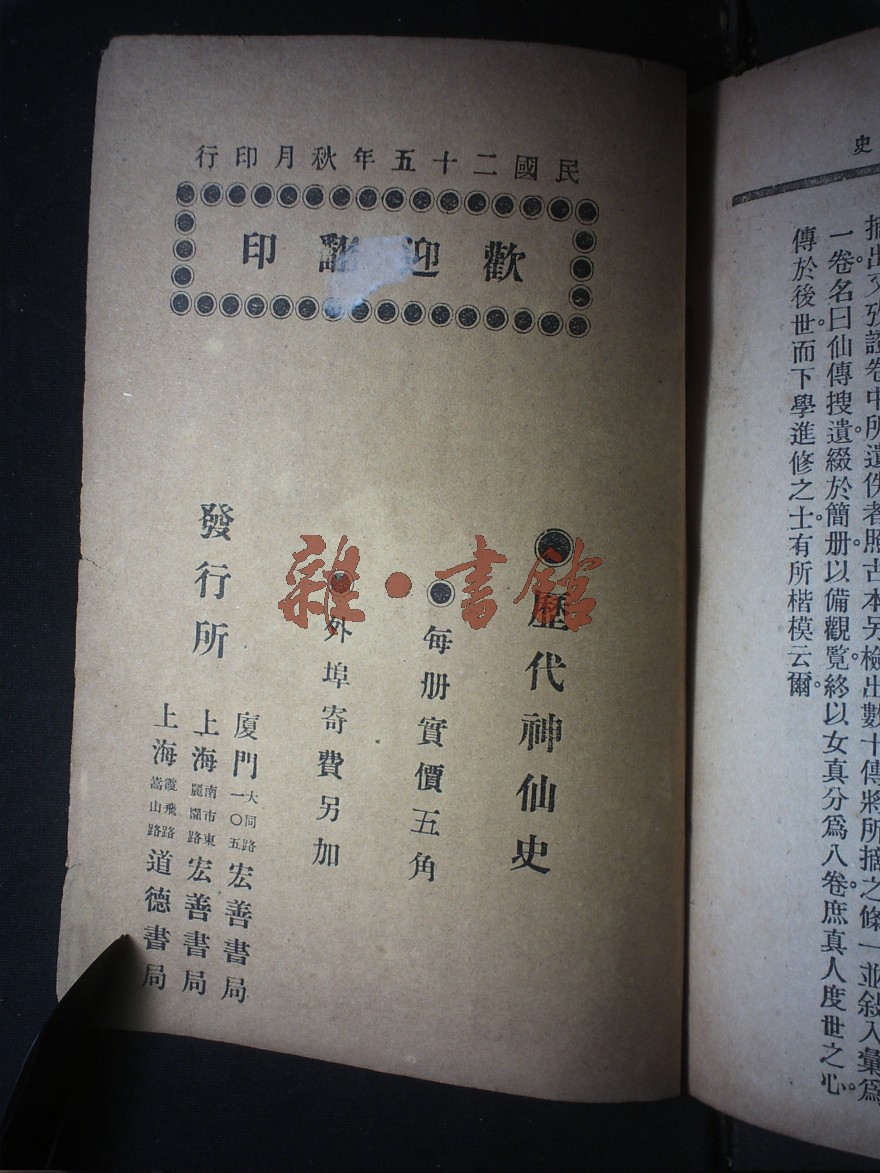 史
摘出又攷證卷中所遺佚者照古本另檢出數十傳將所摘之條一並敍入彙爲
一卷。名曰仙傳搜遺。綴於簡册。以備觀覽。終以女真分爲八卷。庶真人度世之心。
傳於後世。而下學進修之士。有所楷模云爾。
民國二十五年秋月印行
歡迎翻印
歷代神仙史
每册實價五角
外埠寄費另加
發行所
廈門大同路一〇五宏善書局
上海南市東麗園路宏善書局
上海霞飛路嵩山路道德書局
雜·書館